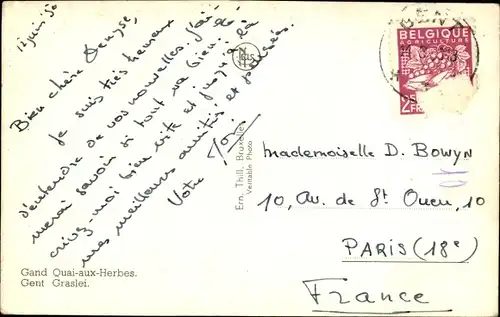 12 juin 50
Bien chère Denyse,
Je suis très heureux
d'entendre de vos nouvelles. J'ai-
merai savoir si tout va bien. É-
crivez-moi bien vite et jusque là
mes meilleures amitiés et pensées.
Votre
Ern. Thill, Bruxelles
Veritable Photo
GENT
BELGIQUE
AGRICULTURE
2
FR
Mademoiselle D. Bowyn
10, Av. de St Ouen, 10
PARIS (18e)
France
Gand Quai-aux-Herbes.
Gent Graslei.